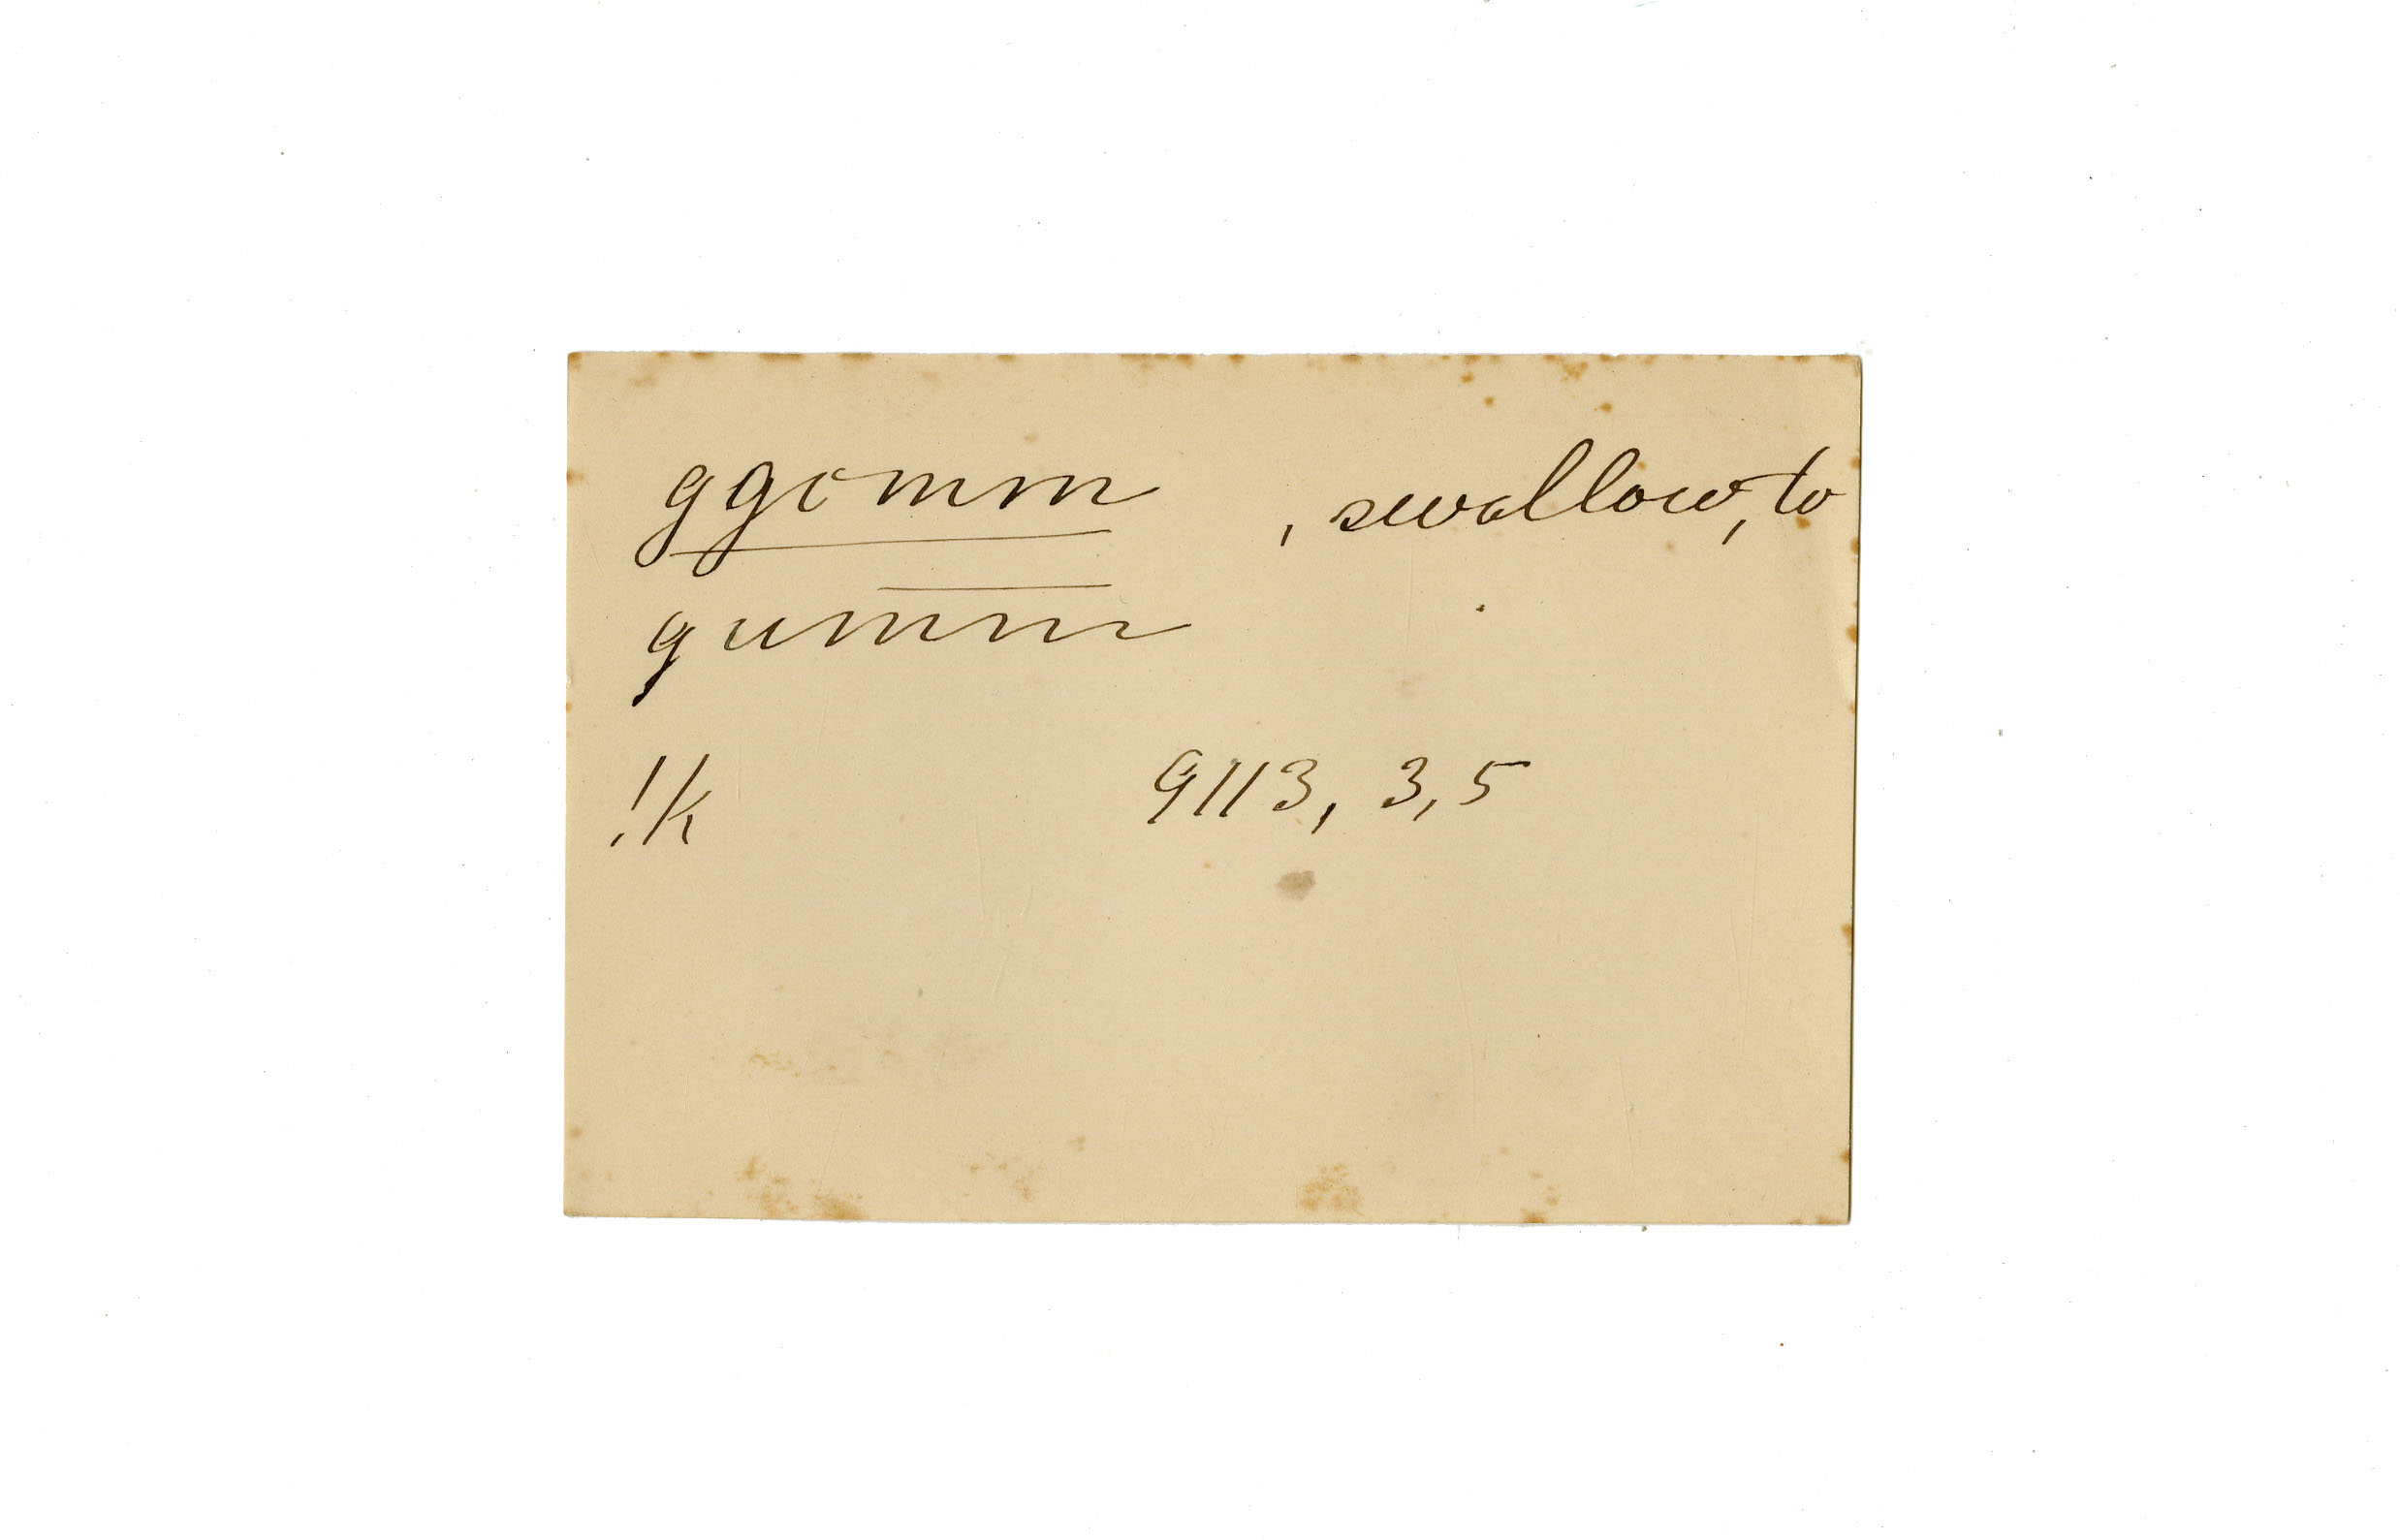 ggomm , swallow, to
gumm
!k 9113, 3,5